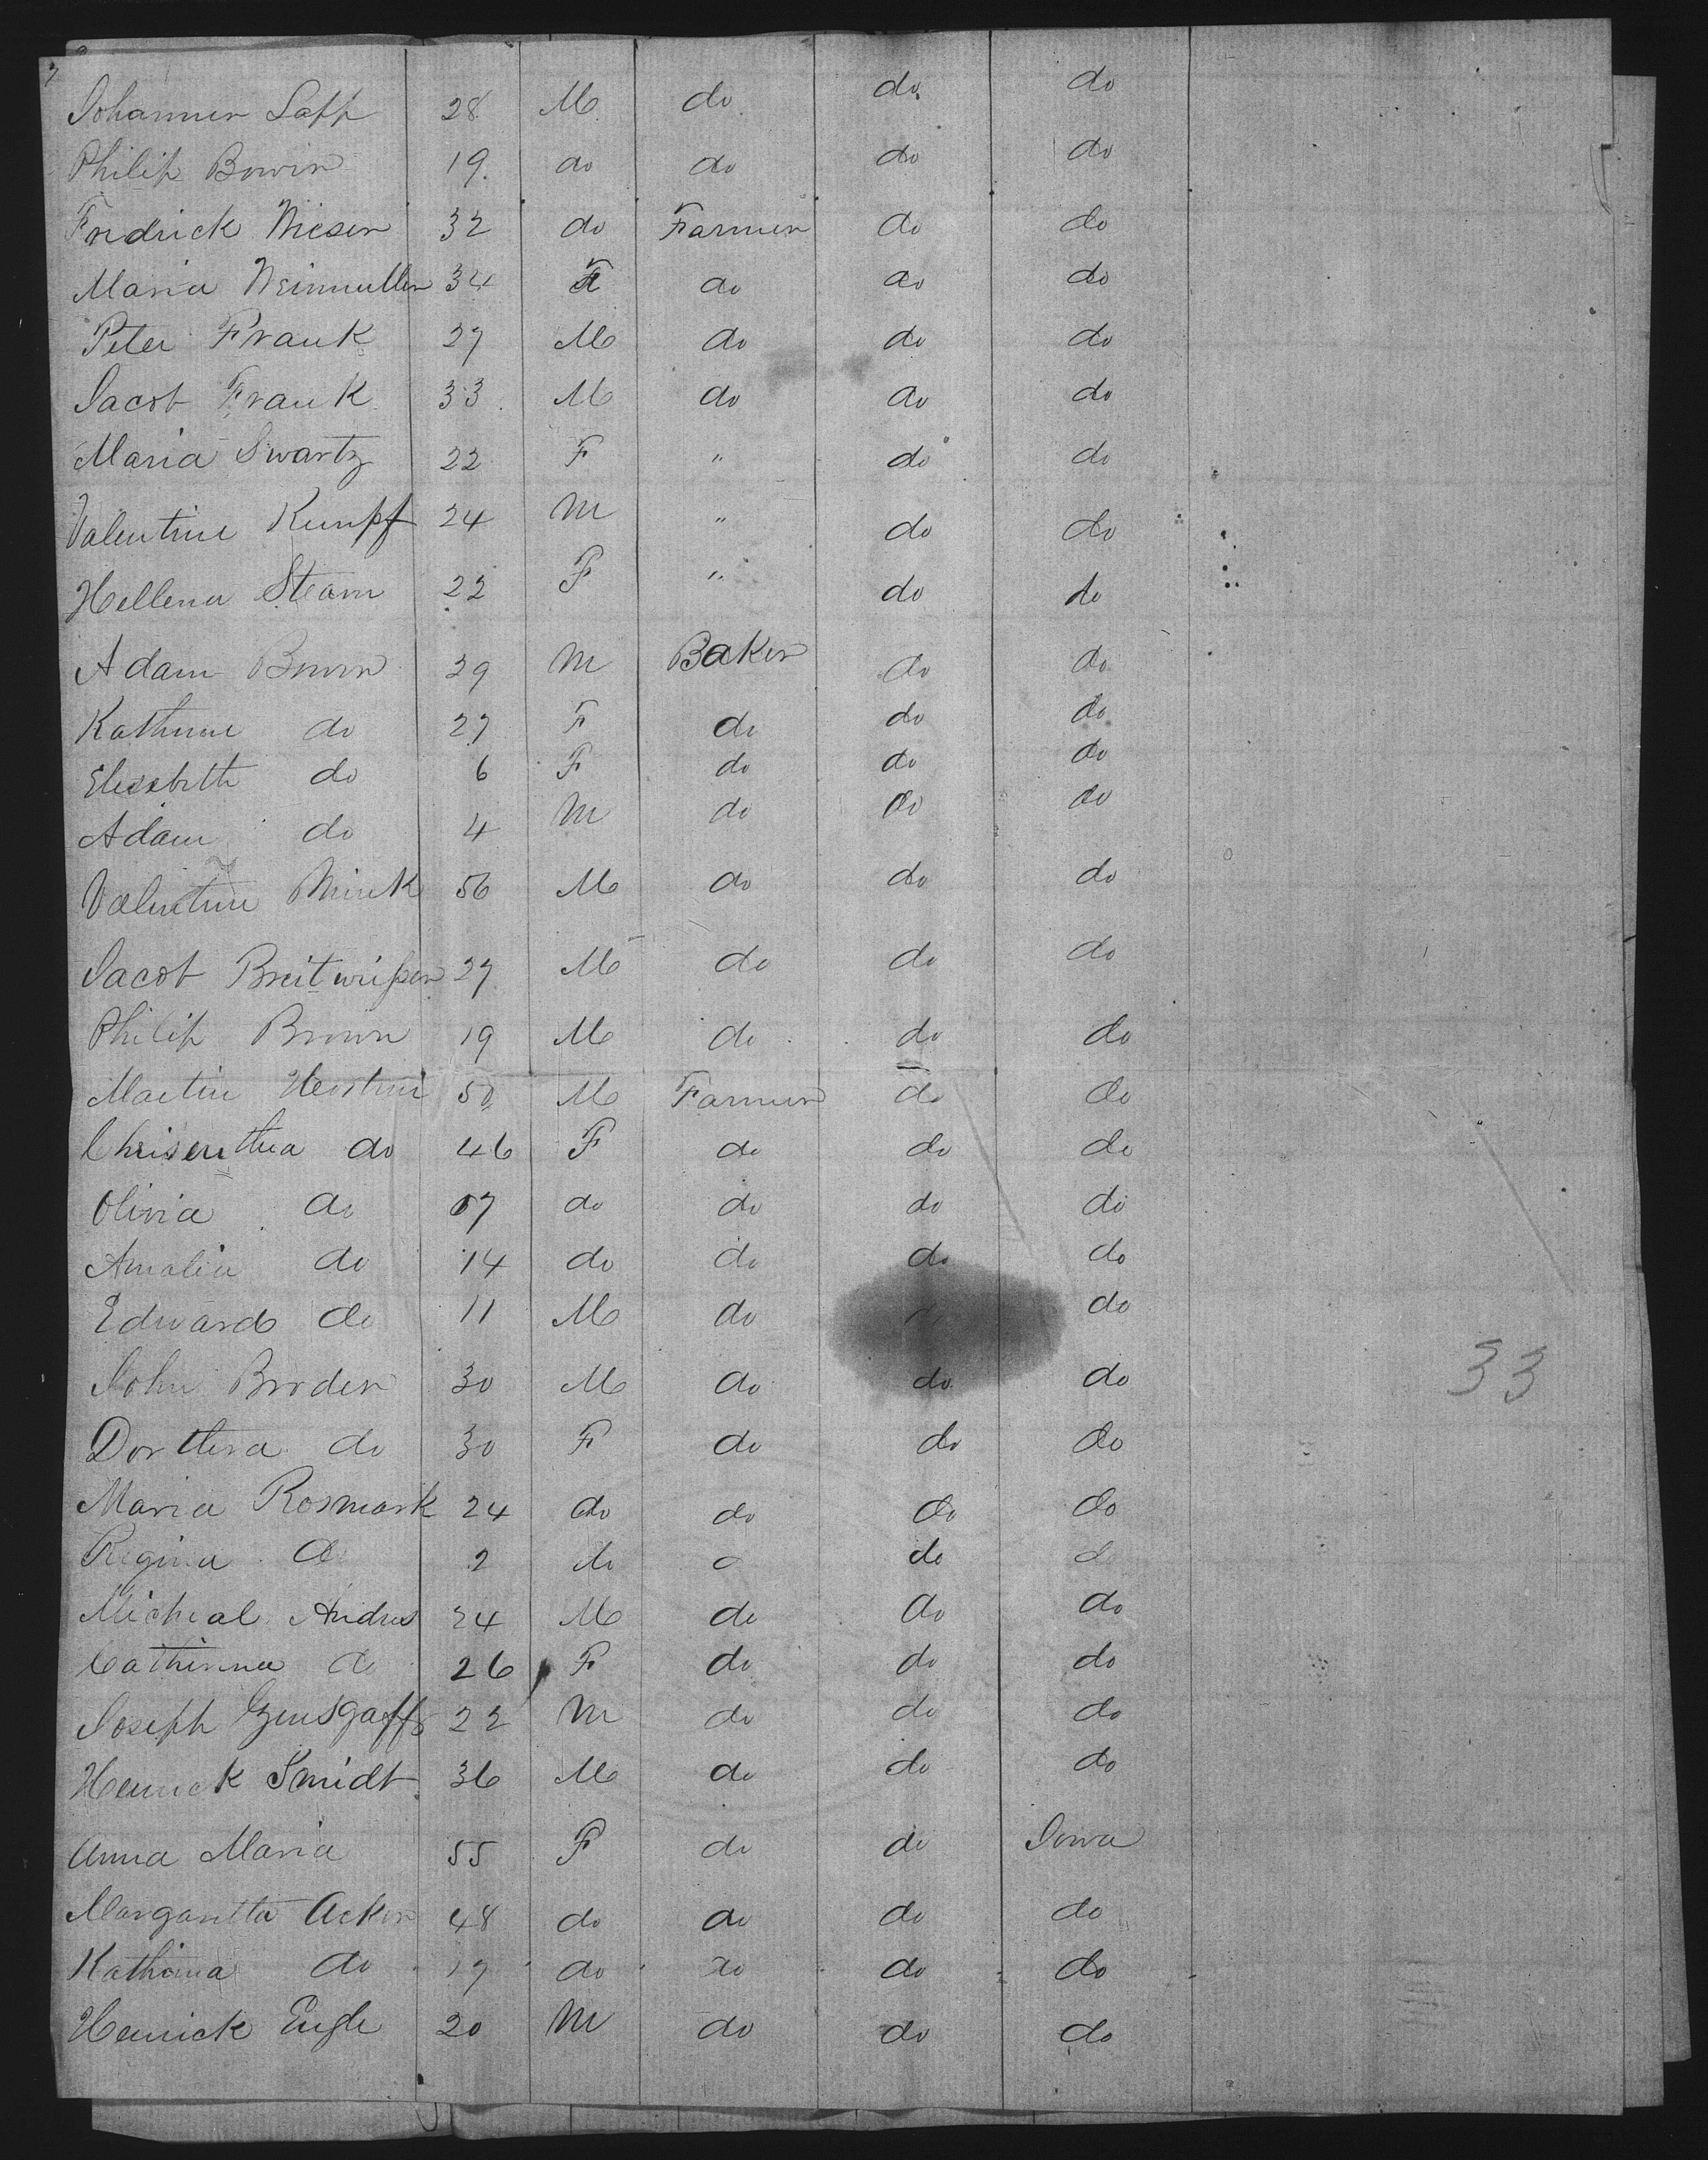 Johannes Sapp 28 M do do do
Philip Bowin 19 do do do do
Fredrick Wieser 32 do Farmer do do
Maria Weinmuller 34 F do do do
Peter Frank 27 M do do do
Jacob Frank 33 M do do do
Maria Swartz 22 F " do do
Valentine Kumpf 24 M " do do
Hellena Steam 22 F " do do
Adam Brown 29 M Baker do do
Kathrine do 27 F do do do
Elezabeth do 6 F do do do
Adam do 4 M do do do
Valentine Mink 56 M do do do
Jacob Breitwisser 27 M do do do
Philip Brown 19 M do do do
Martin 50 M Farmer do do
Chrisenthea do 46 F do do do
Olivia do 17 do do do do
Amalia do 14 do do do do
Edward do 11 M do do do
John Broder 30 M do do do
33
Dorthea do 30 F do do do
Maria Rosmark 24 do do do do
Regina do 2 do do do
Micheal Andres 24 M do do do
Catherina do 26 F do do do
Joseph 22 M do do do
Henrick Smidt 36 M do do do
Anna Maria 55 F do do Iowa
Margaretta Acker 48 do do do do
Kathrina do 19 do do do do
Henrick Engle 20 M do do do